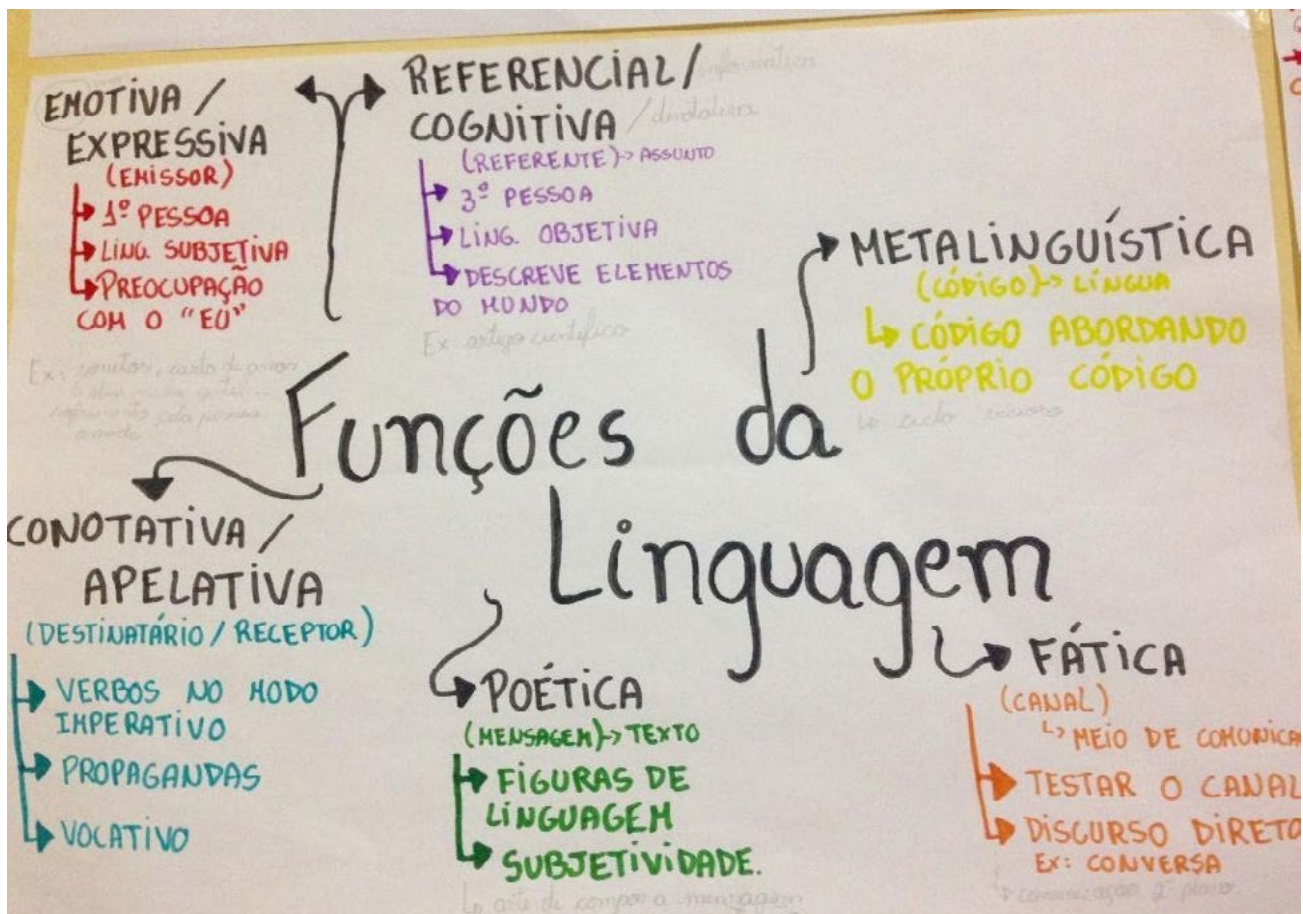 EMOTIVA /
EXPRESSIVA
(EMISSOR)
1º PESSOA
LING. SUBJETIVA
PREOCUPAÇÃO
COM O "EU"
REFERENCIAL /
COGNITIVA
(REFERENTE) → ASSUNTO
3º PESSOA
LING. OBJETIVA
DESCREVE ELEMENTOS
DO MUNDO
Ex: artigo científico
METALINGUÍSTICA
(CÓDIGO) → LÍNGUA
CÓDIGO ABORDANDO
O PRÓPRIO CÓDIGO
Funções da
Linguagem
CONOTATIVA /
APELATIVA
(DESTINATÁRIO / RECEPTOR)
VERBOS NO MODO
IMPERATIVO
PROPAGANDAS
VOCATIVO
POÉTICA
(MENSAGEM) → TEXTO
FIGURAS DE
LINGUAGEM
SUBJETIVIDADE.
arte de compor a mensagem
FÁTICA
(CANAL)
MEIO DE COMUNICA
TESTAR O CANAL
DISCURSO DIRETO
Ex: CONVERSA
comunicação 2º plano